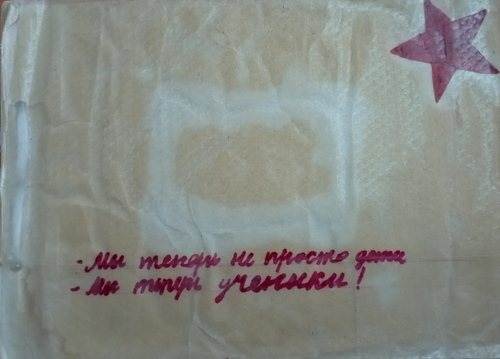 - Мы теперь не просто дети
- Мы теперь ученики!